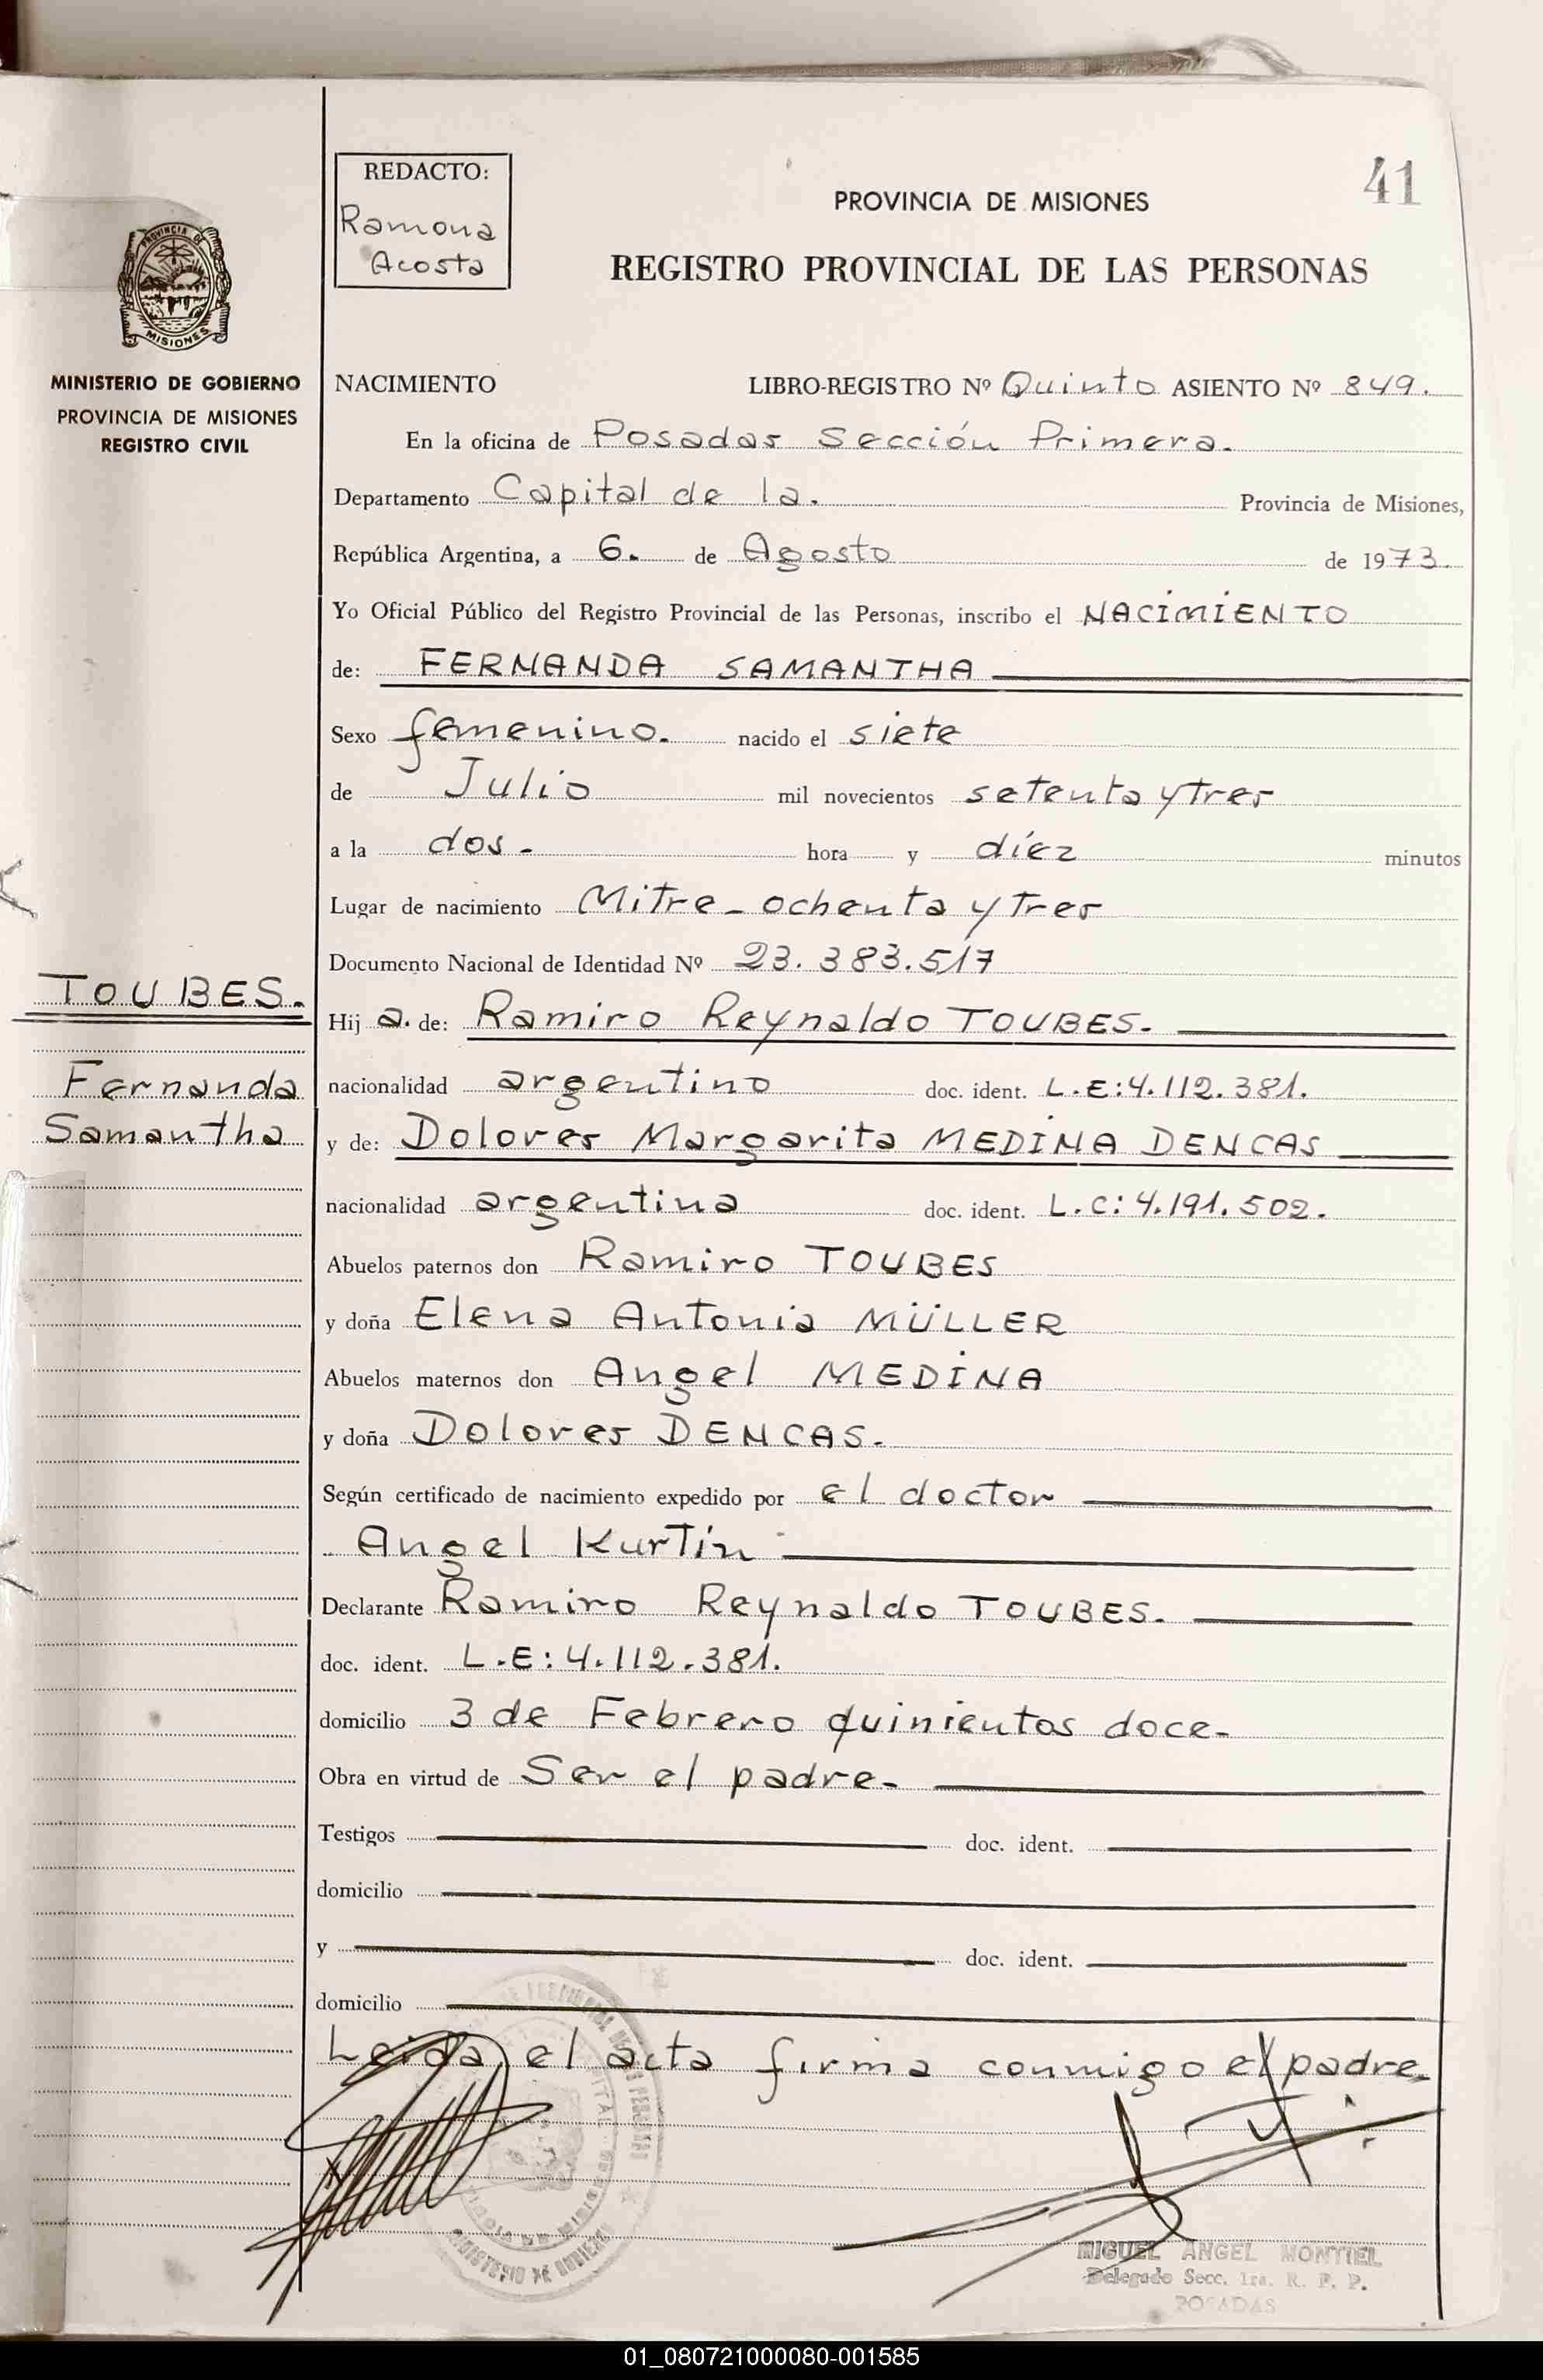 REDACTO:
Ramona
Acosta
41
PROVINCIA DE MISIONES
REGISTRO PROVINCIAL DE LAS PERSONAS
PROVINCIA DE
MISIONES
MINISTERIO DE GOBIERNO
PROVINCIA DE MISIONES
REGISTRO CIVIL
NACIMIENTO LIBRO-REGISTRO Nº Quinto ASIENTO Nº 849.
En la oficina de Posadas Sección Primera.
Departamento Capital de la. Provincia de Misiones,
República Argentina, a 6. de Agosto de 1973.
Yo Oficial Público del Registro Provincial de las Personas, inscribo el NACIMIENTO
de: FERNANDA SAMANTHA
Sexo femenino. nacido el siete
de Julio mil novecientos setenta y tres
a la dos. hora y diez minutos
Lugar de nacimiento Mitre - ochenta y tres
Documento Nacional de Identidad Nº 23.383.517
TOUBES.
Fernanda
Samantha
Hij a. de: Ramiro Reynaldo TOUBES.
nacionalidad argentino doc. ident. L.E: 4.112.381.
y de: Dolores Margarita MEDINA DENCAS
nacionalidad argentina doc. ident. L.C: 4.191.502.
Abuelos paternos don Ramiro TOUBES
y doña Elena Antonia MÜLLER
Abuelos maternos don Angel MEDINA
y doña Dolores DENCAS.
Según certificado de nacimiento expedido por el doctor
Angel Kurtin
Declarante Ramiro Reynaldo TOUBES.
doc. ident. L.E: 4.112.381.
domicilio 3 de Febrero quinientos doce.
Obra en virtud de Ser el padre.
Testigos doc. ident.
domicilio
y doc. ident.
domicilio
Leida el acta firma conmigo el padre.
MIGUEL ANGEL MONTIEL
Delegado Secc. 1ra. R. P. P.
POSADAS
01_080721000080-001585